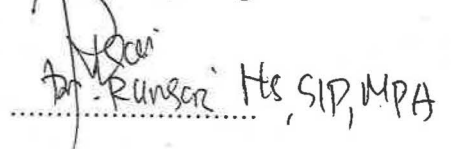 Dr. Runsari Hs, SIP, MPA